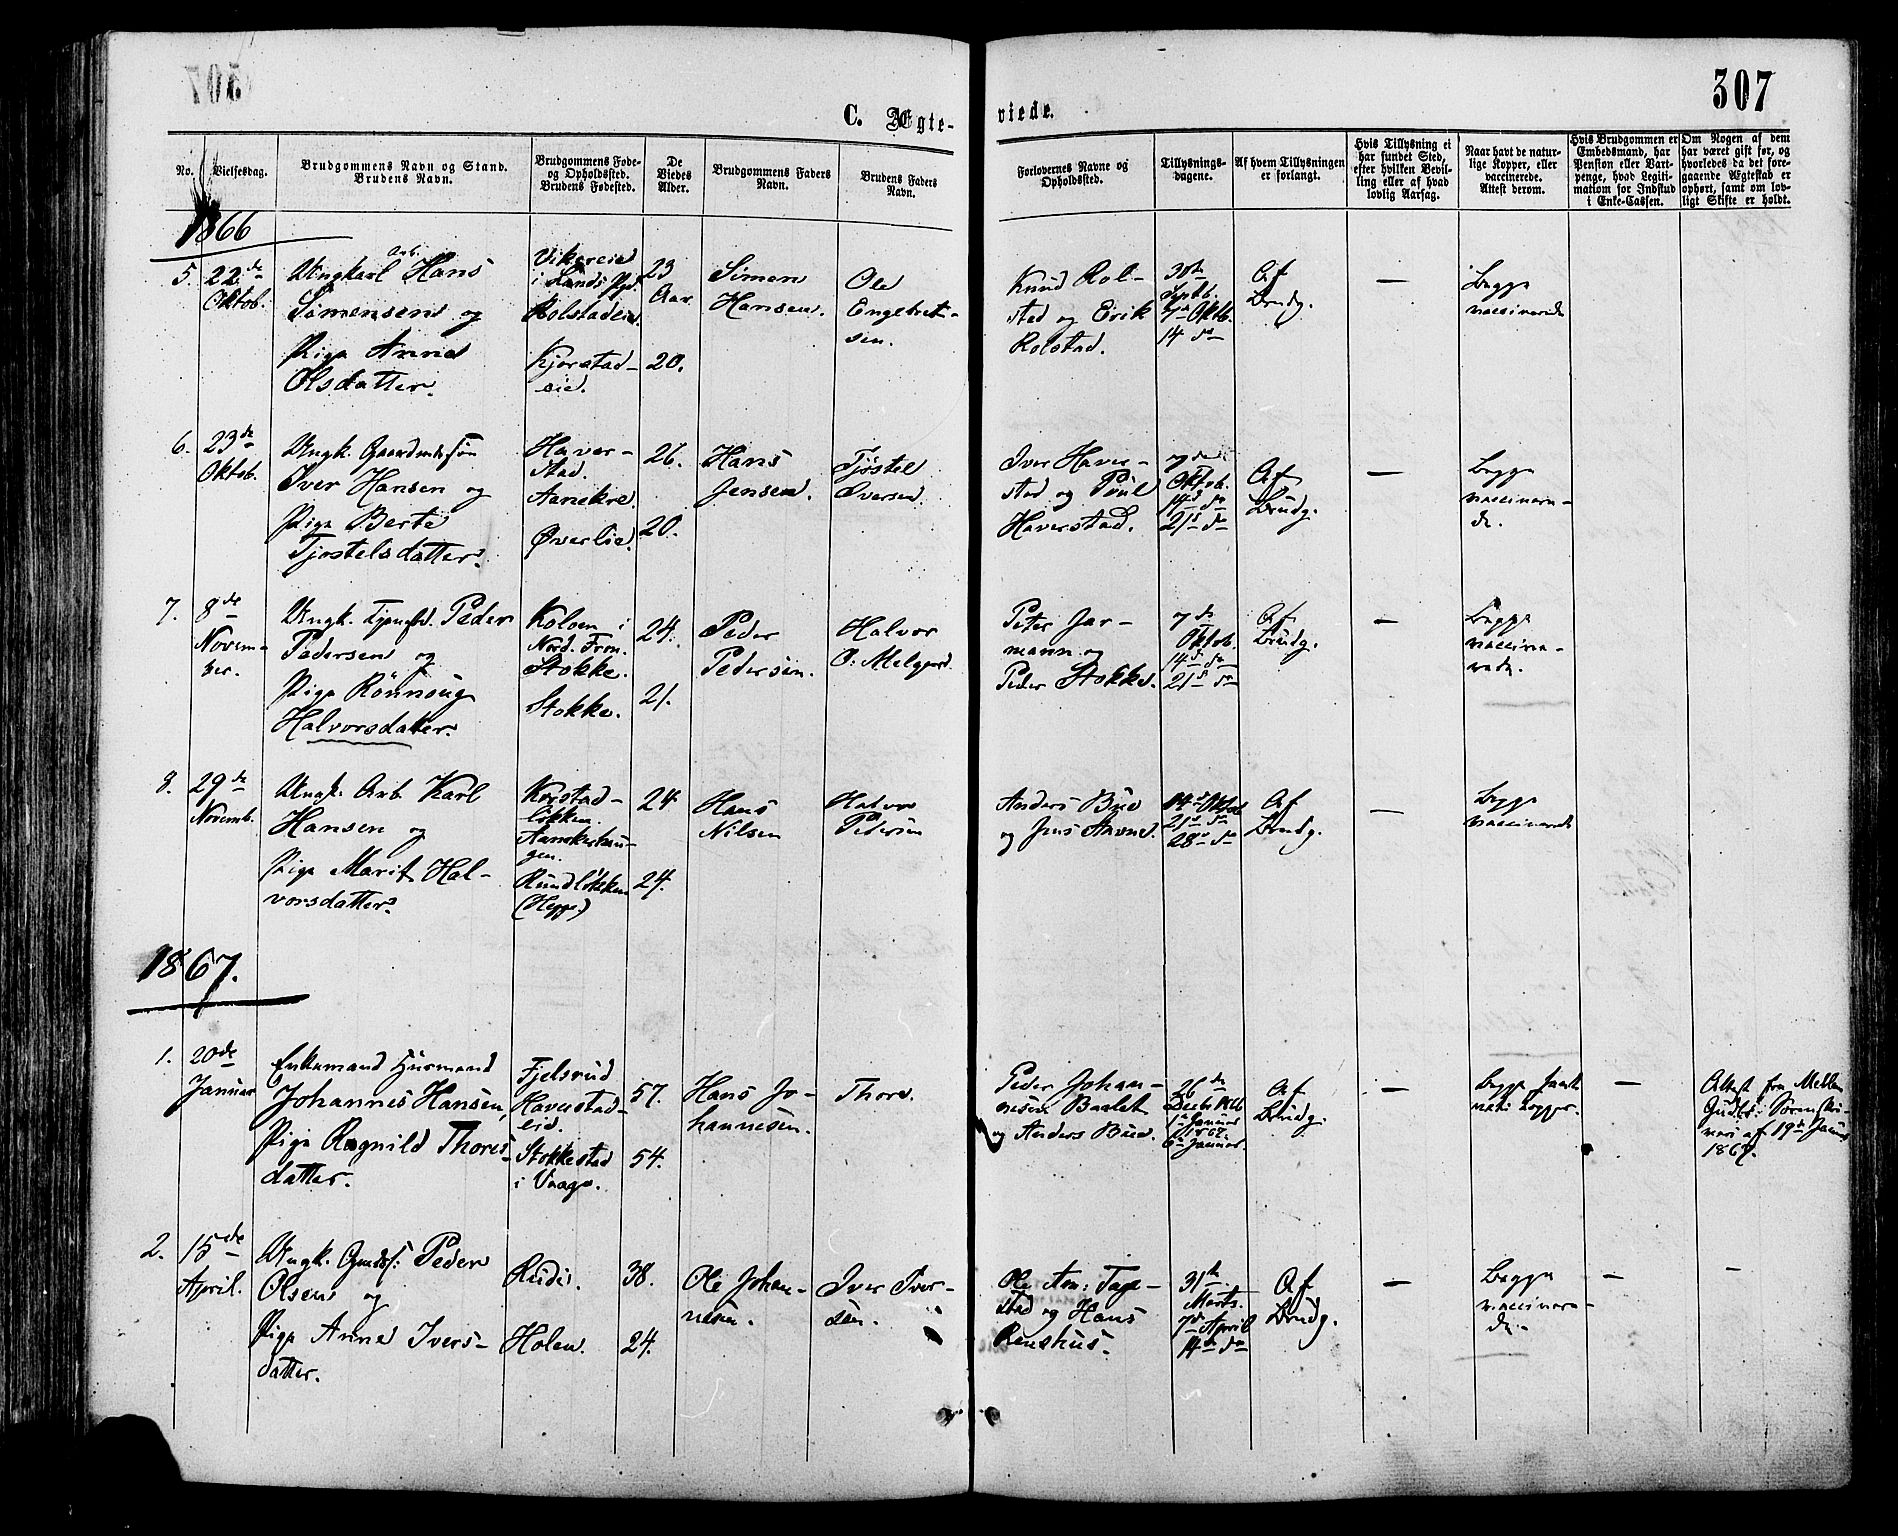 307
C. Ægte-
viede.
No.
Vielsesdag.
Brudgommens Navn og Stand.
Brudens Navn.
Brudgommens Føde-
og Opholdssted.
Brudens Fødested.
De
Viedes
Alder.
Brudgommens Faders
Navn.
Brudens Faders
Navn.
Forlovernes Navne og
Opholdssted.
Tillysnings-
dagene.
Af hvem Tillysningen
er forlangt.
Hvis Tillysning ei
har fundet Sted,
efter hvilken Bevil-
ling eller af hvad
lovlig Aarsag.
Naar havt de natur-
lige Kopper, eller
vaccinerede.
Attest derom.
Hvis Brudgommen er
Embedsmand, har
Pension eller Vart-
penge, hvad Legiti-
mation for Indskud
i Enke-Cassen.
Om Nogen af dem
har været gift før, og
hvorledes da det fore-
gaaende Ægteskab er
ophørt, samt om lov-
ligt Skifte er holdt.
1866
5.
22de
Oktob.
Ungkarl Arb. Hans
Simensen og
Pige Anne
Olsdatter.
Vikereie
i Lands Pgd.
Rolstadeie.
Kjorstad-
eie.
23
Aar
20.
Simen
Hansen.
Ole
Engebret-
sen.
Knud Rol-
stad og Erik
Rolstad.
30te
Septb.
7de Oktb.
14 do
Af
Brudg.
—
Begge
vaccinerede
6.
23de
Oktob.
Ungk. Gaardmandssøn
Iver Hansen og
Pige Berte
Tjostelsdatter.
Haver-
stad.
Aanekre.
Øverlie.
26.
20.
Hans
Jensen.
Tjøstel
Iversen.
Iver Haver-
stad og Poul
Haverstad.
7de
Oktob.
14de do
21de do
Af
Brudg.
—
Begge
vaccinere-
de.
7.
8de
Novem-
ber.
Ungk. Tjenestd. Peder
Pedersen og
Pige Rönnoug
Halvorsdatter.
Kolven i
Nord. Fron.
Stokke.
Stokke.
24.
21.
Peder
Pedersen.
Halvor
O. Melgard.
Peter Jar-
mann og
Peder Stokke.
7de
Oktob.
14de do
21de do
Af
Brudg.
—
Begge
vaccine-
rede.
8.
29de
Novemb.
Ungk. Arb. Karl
Hansen og
Pige Marit Hal-
vorsdatter.
Korstad-
løkken.
Rundløkken
(Hegge)
24.
24.
Hans
Nilsen
Halvor
Petersen
Anders Bue
og Jens Stavne.
14de Oktob
21de do
28de do
Af
Brudg.
—
Begge
vaccinerede
1867.
1.
20de
Januar
Enkemand Husmand
Johannes Hansen,
Pige Ragnild Thores-
datter.
Fjelsrud
Haverstad-
eie.
Stokkestad
i Vaage.
57.
54.
Hans Jo-
hannesen.
Thore.
Peder Johan-
nesen Baalet
og Anders Bue.
26de
Decbr. 1866
1ste Januar
1867.
6te Januar.
Af
Brudg.
—
Begge havt
nat. Kopper.
—
Attest fra Mellem
Gudbr. Sorenskri-
veri af 19de Januar
1867.
2.
15de
April.
Ungk. Gmdss: Peder
Olsen og
Pige Anne Ivers-
datter.
Rudi.
Holen.
38.
24.
Ole Johan-
nesen.
Iver Iver-
sen.
Ole Am: Tage-
stad og Hans
Renshus.
31te
Marts.
7de April
14de do
Af
Brudg.
—
Begge
vaccinere-
de.
—
—